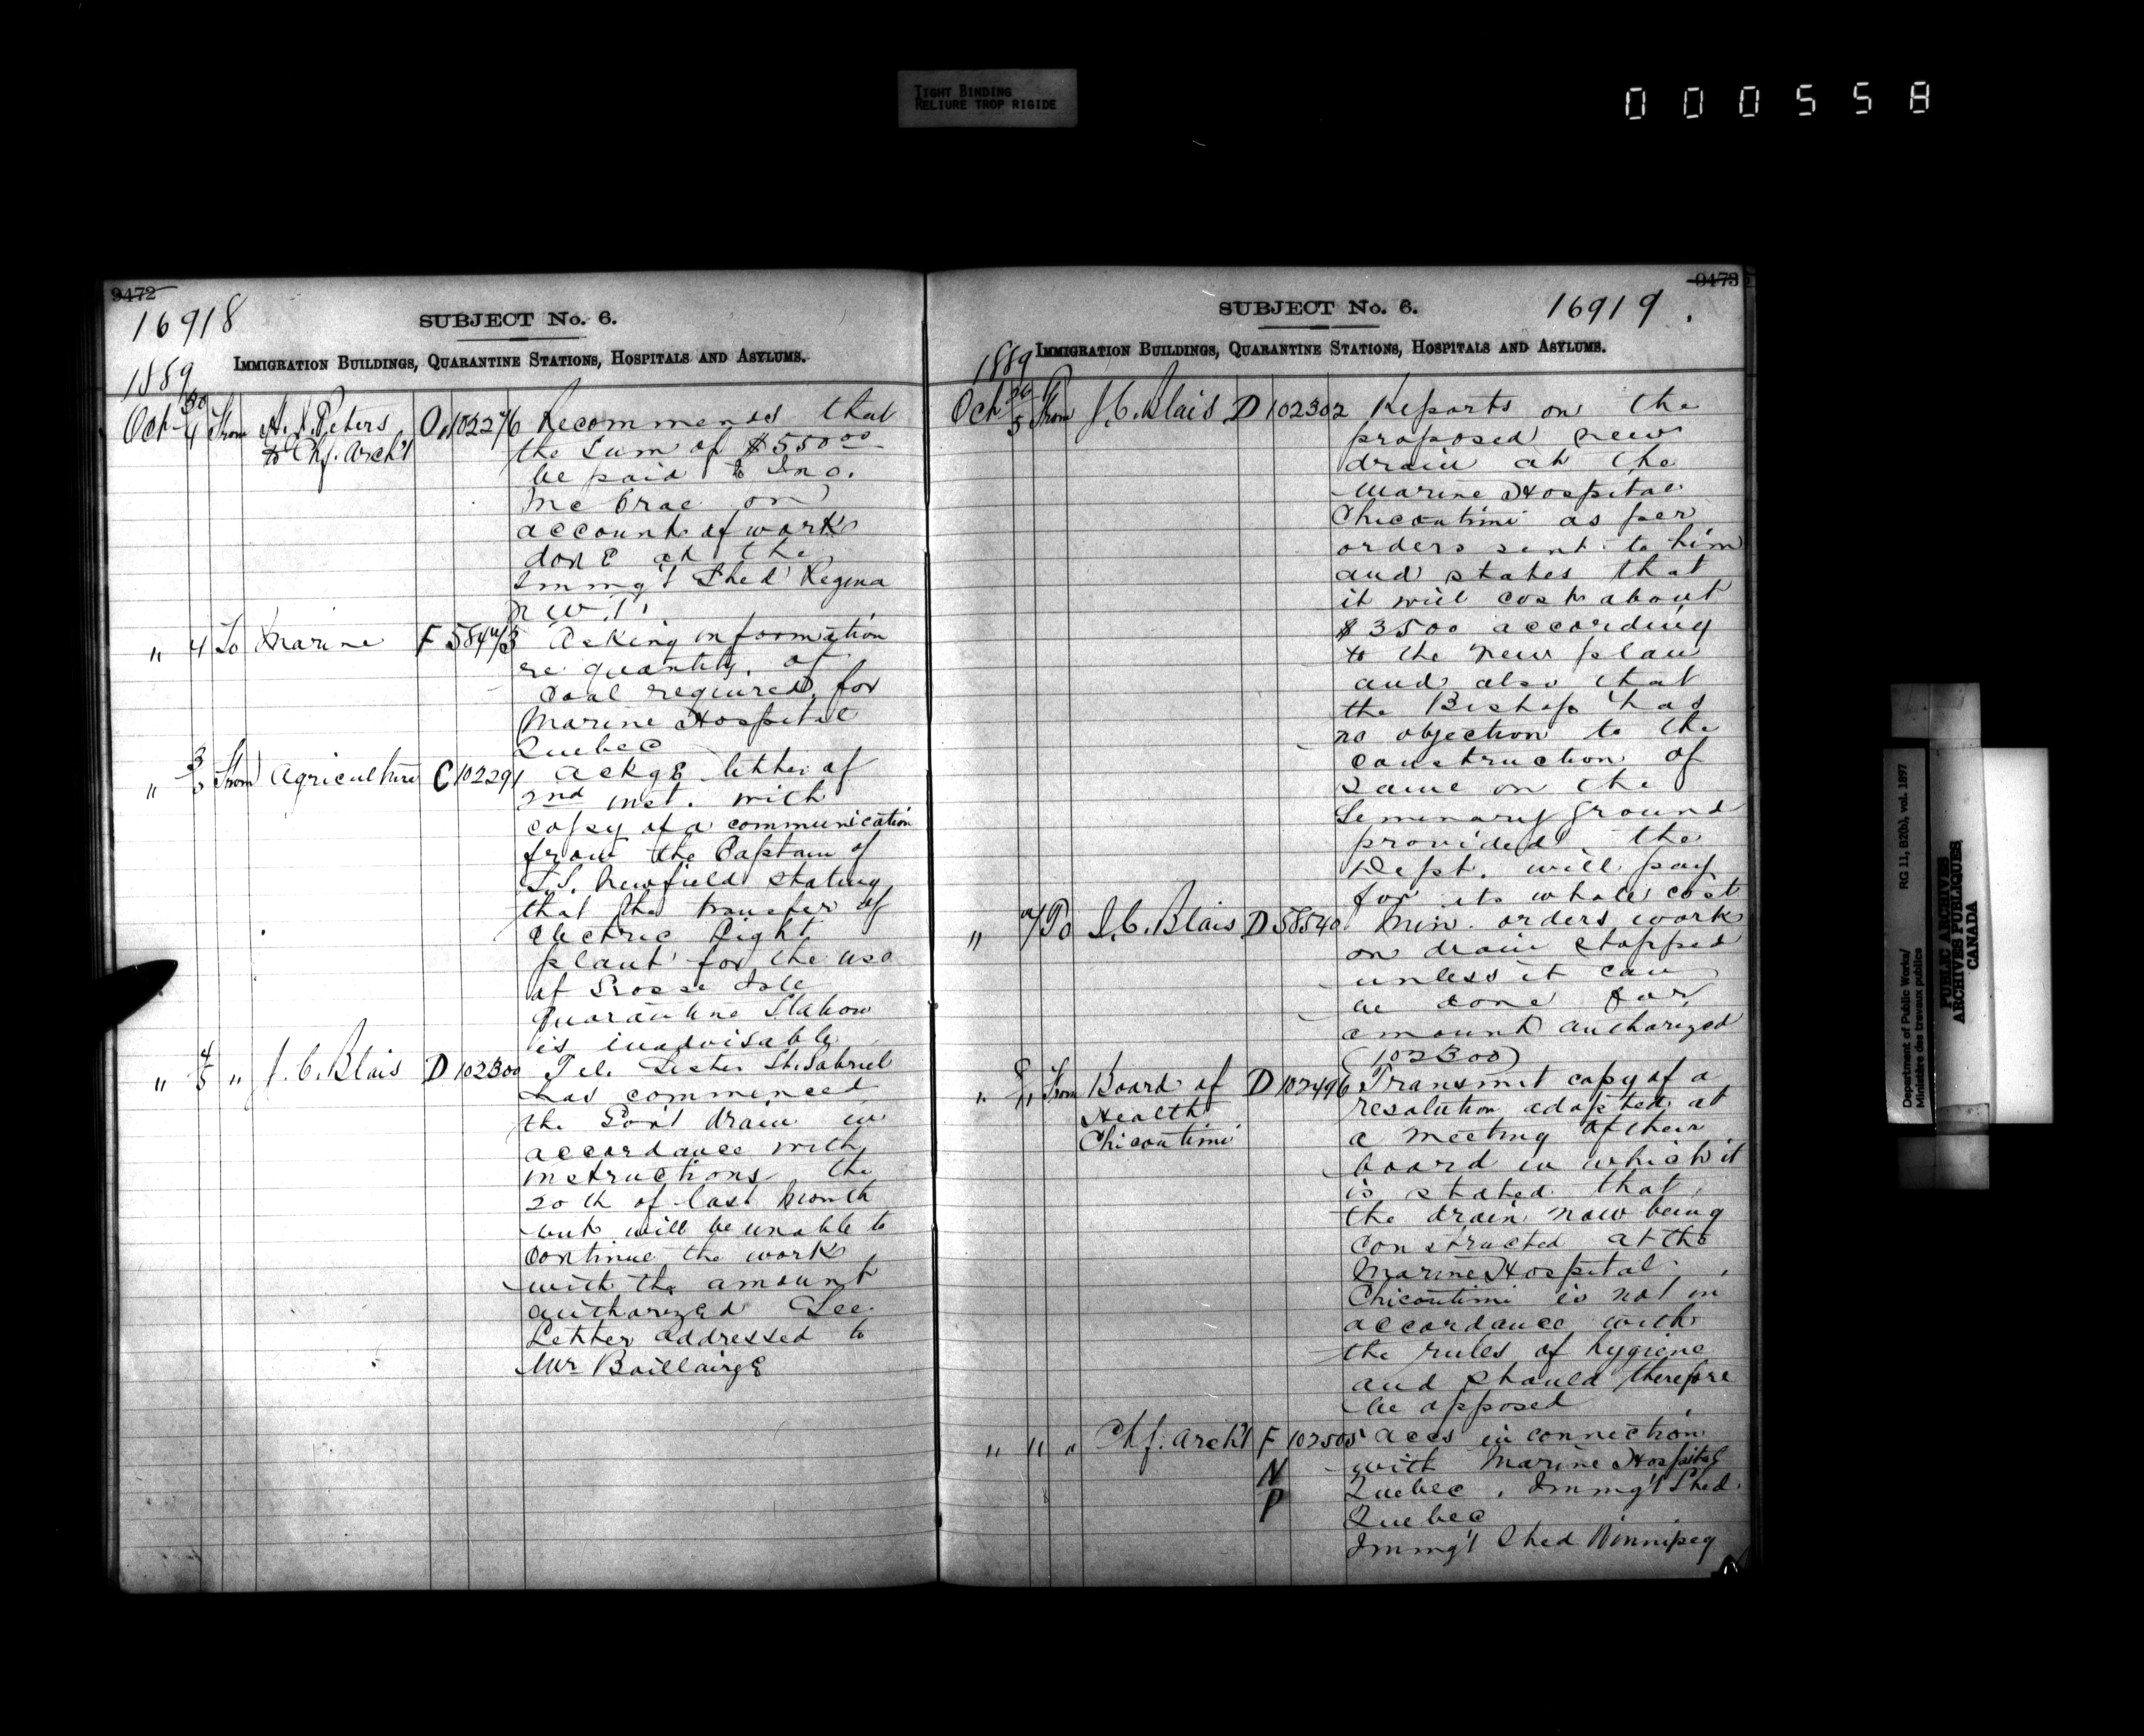 TIGHT BINDING
RELIURE TROP RIGIDE
000558
9472
16918
SUBJECT No. 6.
IMMIGRATION BUILDINGS, QUARANTINE STATIONS, HOSPITALS AND ASYLUMS.
1889
Oct 30/4 From A. J. Peters O 102276 Recommends that
to Chf. Arch't the sum of $550 00
be paid to Jno.
McCrae on
account of works
done at the
Immg't Shed Regina
N.W.T.
" 4 To Marine F 58443 Asking information
re quantity of
Coal required for
Marine Hospital
Quebec
" 3/5 From Agriculture C 102291 Ackge letter of
2nd inst. with
copy of a communication
from the Captain of
S.S. Newfield stating
that the transfer of
Electric Light
plant for the use
of Grosse Isle
Quarantine Station
is inadvisable
" 4/5 " J. C. Blais D 102300 Tel. Sister St. Gabriel
has commenced
the Gov't drain in
accordance with
instructions the
20th of last month
but will be unable to
continue the works
with the amount
authorized See
Letter addressed to
Mr Baillairgé
9473
SUBJECT No. 6. 16919.
IMMIGRATION BUILDINGS, QUARANTINE STATIONS, HOSPITALS AND ASYLUMS.
1889
Oct 5 From J. C. Blais D 102302 Reports on the
proposed new
drain at the
Marine Hospital
Chicoutimi as per
orders sent to him
and states that
it will cost about
$3500 according
to the new plan
and also that
the Bishop has
no objection to the
construction of
same on the
Seminary ground
provided the
Dept. will pay
for its whole cost
" To J. C. Blais D 58540 Min. orders work
on drain stopped
unless it can
be done for
amount authorized
(102300)
" From Board of D 102496 Transmit copy of a
Health resolution adopted at
Chicoutimi a meeting of their
board in which it
is stated that
the drain now being
constructed at the
Marine Hospital
Chicoutimi is not in
accordance with
the rules of hygiene
and should therefore
be opposed
" " " Chf. Arch't F 102505 accs in connection
N with Marine Hospital
P Quebec, Immg't Shed
Quebec
Immg't Shed Winnipeg
Department of Public Works/ RG 11, B2(b), vol. 1897
Ministère des travaux publics
PUBLIC ARCHIVES
ARCHIVES PUBLIQUES
CANADA